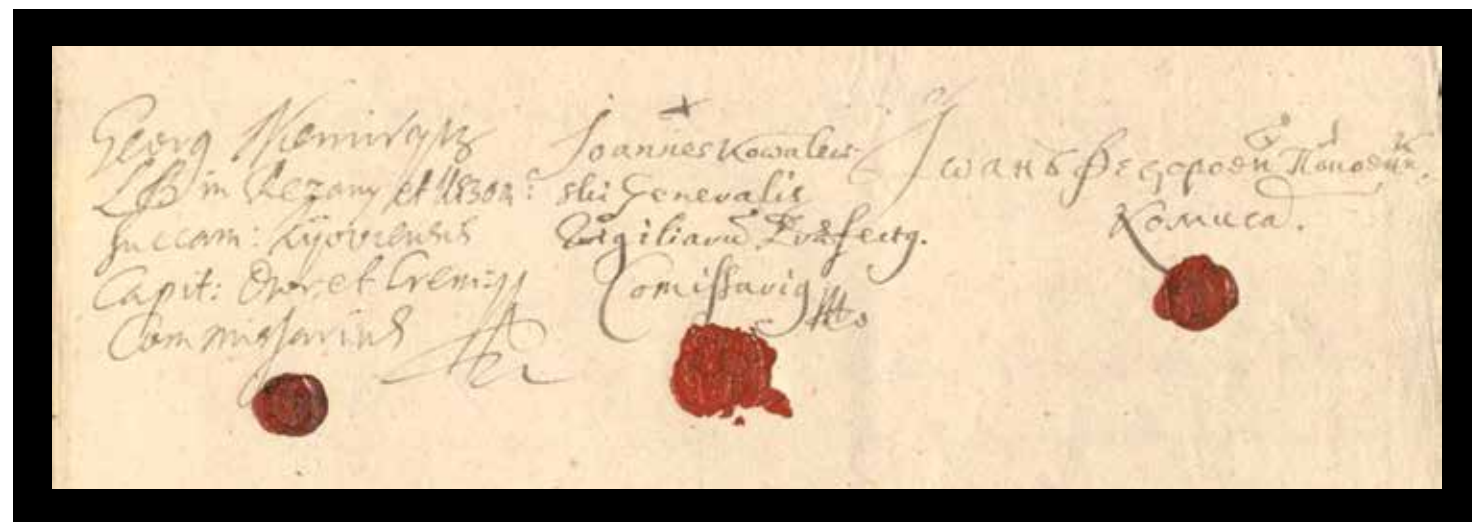 Georg Niemirycz
LB in et
Succam: Kyoviensis
Capit: Owr: et Crem:
Commissarius
Joannes Kowalew-
ski Generalis
Vigiliarū Præfectg.
Comissarig
Іwанъ Федорови Попович
Комиса.